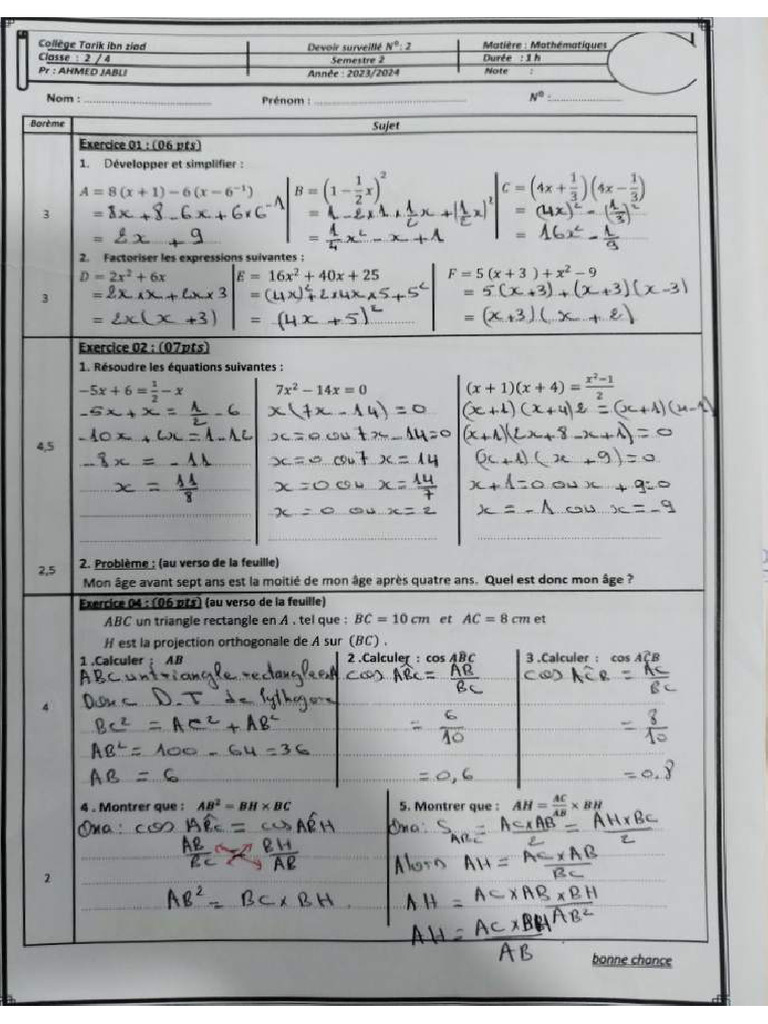 Collège Tarik ibn ziad
Classe : 2 / 4
Pr : AHMED JABLI
Devoir surveillé N°: 2
Semestre 2
Année : 2023/2024
Matière : Mathématiques
Durée : 1 h
Note :
Nom : .......... Prénom : .......... N° :..........
Barème
Sujet
Exercice 01 : (06 pts)
1. Développer et simplifier :
3
A = 8(x + 1) − 6(x − 6⁻¹)
= 8x + 8 - 6x + 6×6⁻¹
= 2x + 9
B = (1 − 1/2 x)²
= 1 - 2×1×1/2 x + (1/2 x)²
= 1/4 x² - x + 1
C = (4x + 1/3)(4x − 1/3)
= (4x)² - (1/3)²
= 16x² - 1/9
2. Factoriser les expressions suivantes :
3
D = 2x² + 6x
= 2x × x + 2x × 3
= 2x(x + 3)
E = 16x² + 40x + 25
= (4x)² + 2×4x×5 + 5²
= (4x + 5)²
F = 5(x + 3) + x² − 9
= 5(x+3) + (x+3)(x-3)
= (x+3)(x + 2)
Exercice 02 : (07pts)
1. Résoudre les équations suivantes :
4,5
−5x + 6 = 1/2 − x
-5x + x = 1/2 - 6
-10x + 2x = 1 - 12
-8x = -11
x = 11/8
7x² − 14x = 0
x(7x - 14) = 0
x = 0 ou 7x - 14 = 0
x = 0 ou 7x = 14
x = 0 ou x = 14/7
x = 0 ou x = 2
(x + 1)(x + 4) = (x²−1)/2
(x+1)(x+4)2 = (x+1)(x-1)
(x+1)(2x+8-x+1) = 0
(x+1)(x+9) = 0
x+1=0 ou x+9=0
x = -1 ou x = -9
2,5
2. Problème : (au verso de la feuille)
Mon âge avant sept ans est la moitié de mon âge après quatre ans. Quel est donc mon âge ?
Exercice 04 : (06 pts) (au verso de la feuille)
ABC un triangle rectangle en A , tel que : BC = 10 cm et AC = 8 cm et
H est la projection orthogonale de A sur (BC) .
4
1 .Calculer : AB
ABC un triangle rectangle en A
Donc D.T de Pythagore
BC² = AC² + AB²
AB² = 100 - 64 = 36
AB = 6
2 .Calculer : cos ABC
cos ABC = AB/BC
= 6/10
= 0,6
3 .Calculer : cos ACB
cos ACB = AC/BC
= 8/10
= 0.8
2
4 . Montrer que : AB² = BH × BC
Ona : cos ABC = cos ABH
AB/BC = BH/AB
AB² = BC × BH
5. Montrer que : AH = AC/AB × BH
Ona : S ABC = AC×AB/2 = AH×BC/2
Alors AH = AC×AB/BC
AH = AC×AB×BH/AB²
AH = AC×BH/AB
bonne chance